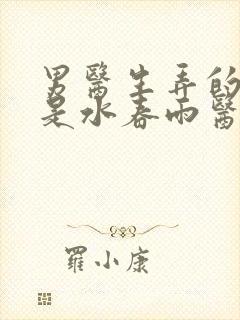 男醫生弄的
是水春雨醫
羅小康